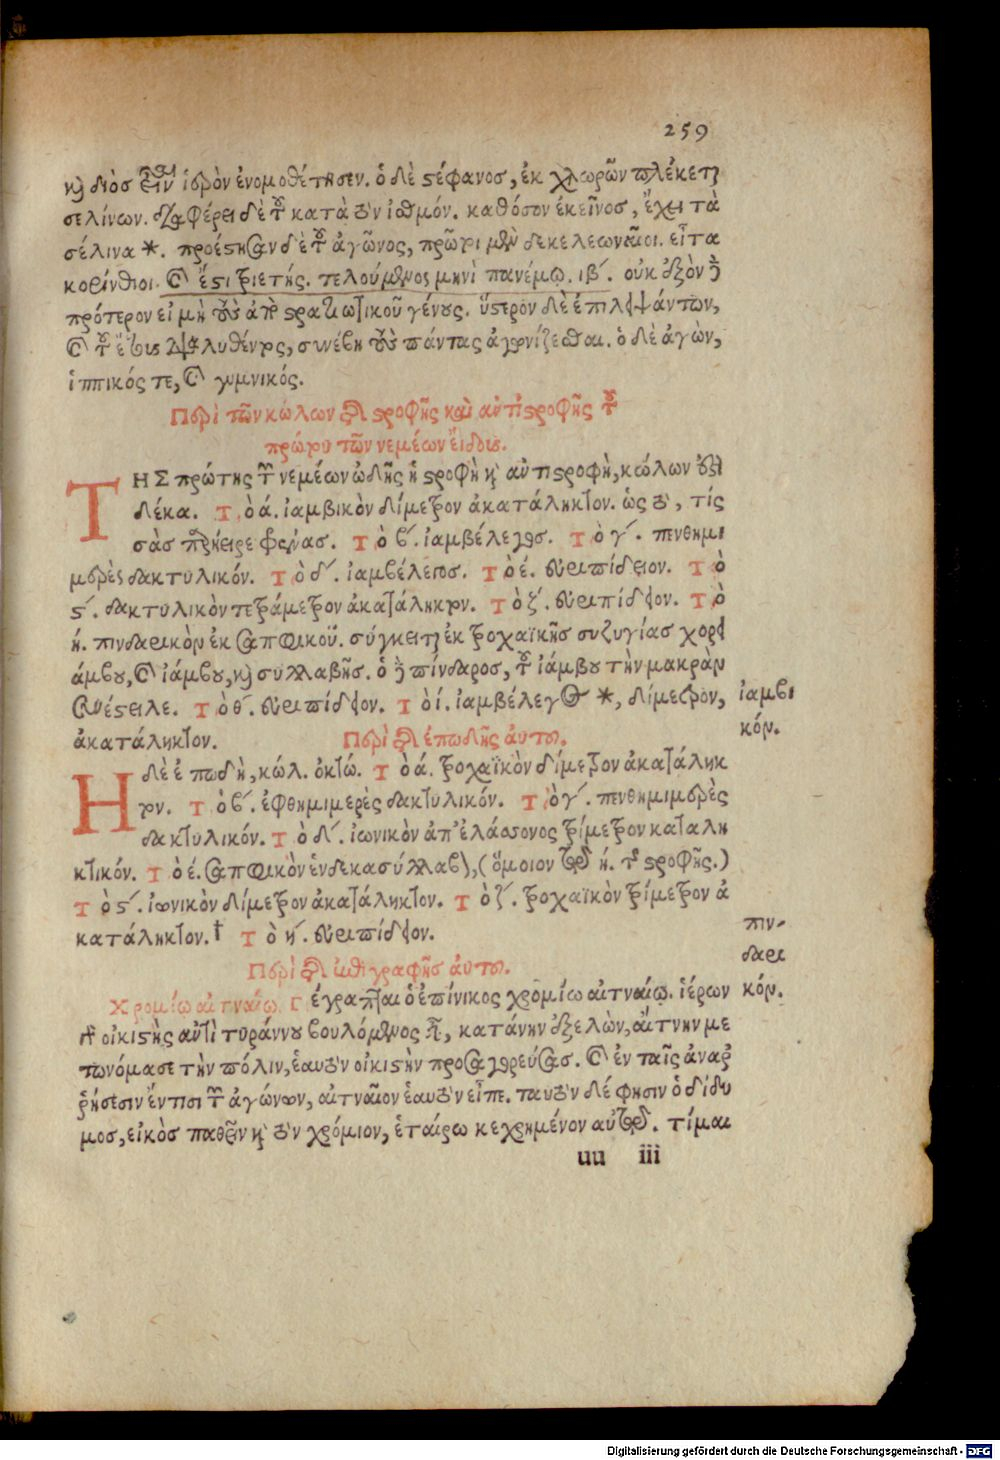 259
καὶ διὸς εἶναι ἱερὸν ἐνομοθέτησεν. ὁ δὲ στέφανος, ἐκ χλωρῶν πλέκεται
σελίνων. διαφέρει δὲ τοῦ κατὰ τὸν ἰσθμόν. καθόσον ἐκεῖνος, ἔχει τὰ
σέλινα *. προέστησαν δὲ τοῦ ἀγῶνος, πρῶτοι μὲν δεκελεωναῖοι. εἶτα
κορίνθιοι. καὶ ἔστι τριετής. τελούμενος μηνὶ πανέμῳ. ιβʹ. οὐκ ἐξὸν
πρότερον εἰ μὴ τοῖς ἀπὸ στρατιωτικοῦ γένους. ὕστερον δὲ ἐπιλειψάντων,
καὶ τοῦ ἔθους διαλυθέντος, συνέβη τοὺς πάντας ἀγωνίζεσθαι. ὁ δὲ ἀγὼν,
ἱππικός τε, καὶ γυμνικός.
Περὶ τῶν κώλων τῆς στροφῆς καὶ ἀντιστροφῆς τοῦ
πρώτου τῶν νεμέων εἴδους.
ΤΗΣ πρώτης τῶν νεμέων ὠδῆς ἡ στροφὴ καὶ ἀντιστροφὴ, κώλων ἐστὶ
δέκα. τὸ ά. ἰαμβικὸν δίμετρον ἀκατάληκτον. ὡς τὸ, τίς
σὰς παρήειρε φρένας. τὸ βʹ. ἰαμβέλεγος. τὸ γʹ. πενθημι
μερὲς δακτυλικόν. τὸ δʹ. ἰαμβέλεγος. τὸ έ. εὐριπίδειον. τὸ
ςʹ. δακτυλικὸν τετράμετρον ἀκατάληκτον. τὸ ζʹ. εὐριπίδειον. τὸ
ή. πινδαρικὸν ἐκ σαπφικοῦ. σύγκειται ἐκ τροχαϊκῆς συζυγίας χορι
άμβου, καὶ ἰάμβου, καὶ συλλαβῆς. ὁ πίνδαρος, τοῦ ἰάμβου τὴν μακρὰν
συνέστειλε. τὸ θʹ. εὐριπίδειον. τὸ ί. ἰαμβέλεγος *, δίμετρον, ἰαμβι
ἀκατάληκτον. Περὶ τῆς ἐπωδῆς αὐτοῦ. κόν.
Η δὲ ἐπωδὴ, κώλ. ὀκτώ. τὸ ά. τροχαϊκὸν δίμετρον ἀκατάληκ
τον. τὸ βʹ. ἑφθημιμερὲς δακτυλικόν. τὸ γʹ. πενθημιμερὲς
δακτυλικόν. τὸ δʹ. ἰωνικὸν ἀπ' ἐλάσσονος τρίμετρον καταλη
κτικόν. τὸ έ. σαπφικὸν ἑνδεκασύλλαβον, (ὅμοιον τῷ ή. τῆς στροφῆς.)
τὸ ςʹ. ἰωνικὸν δίμετρον ἀκατάληκτον. τὸ ζʹ. τροχαϊκὸν τρίμετρον ἀ
κατάληκτον. † τὸ ηʹ. εὐριπίδειον. πιν-
Περὶ τῆς ἐπιγραφῆς αὐτοῦ. δαρι
Χρομίῳ αἰτναίῳ. γέγραπται ὁ ἐπίνικος χρομίῳ αἰτναίῳ. ἱέρων κόν.
οἰκιστὴς ἀντὶ τυράννου βουλόμενος εἶναι, κατάνην ἐξελὼν, αἴτνην με
τωνόμασε τὴν πόλιν, ἑαυτὸν οἰκιστὴν προσαγορεύσας. καὶ ἐν ταῖς ἀναρ
ρήσεσιν ἔντισι τῶν ἀγώνων, αἰτναῖον ἑαυτὸν εἶπε. ταυτὸν δέ φησιν ὁ δίδυ
μος, εἰκὸς παθεῖν καὶ τὸν χρόμιον, ἑταίρῳ κεχρημένον αὐτῷ. τίμαι
uu iii
Digitalisierung gefördert durch die Deutsche Forschungsgemeinschaft - DFG